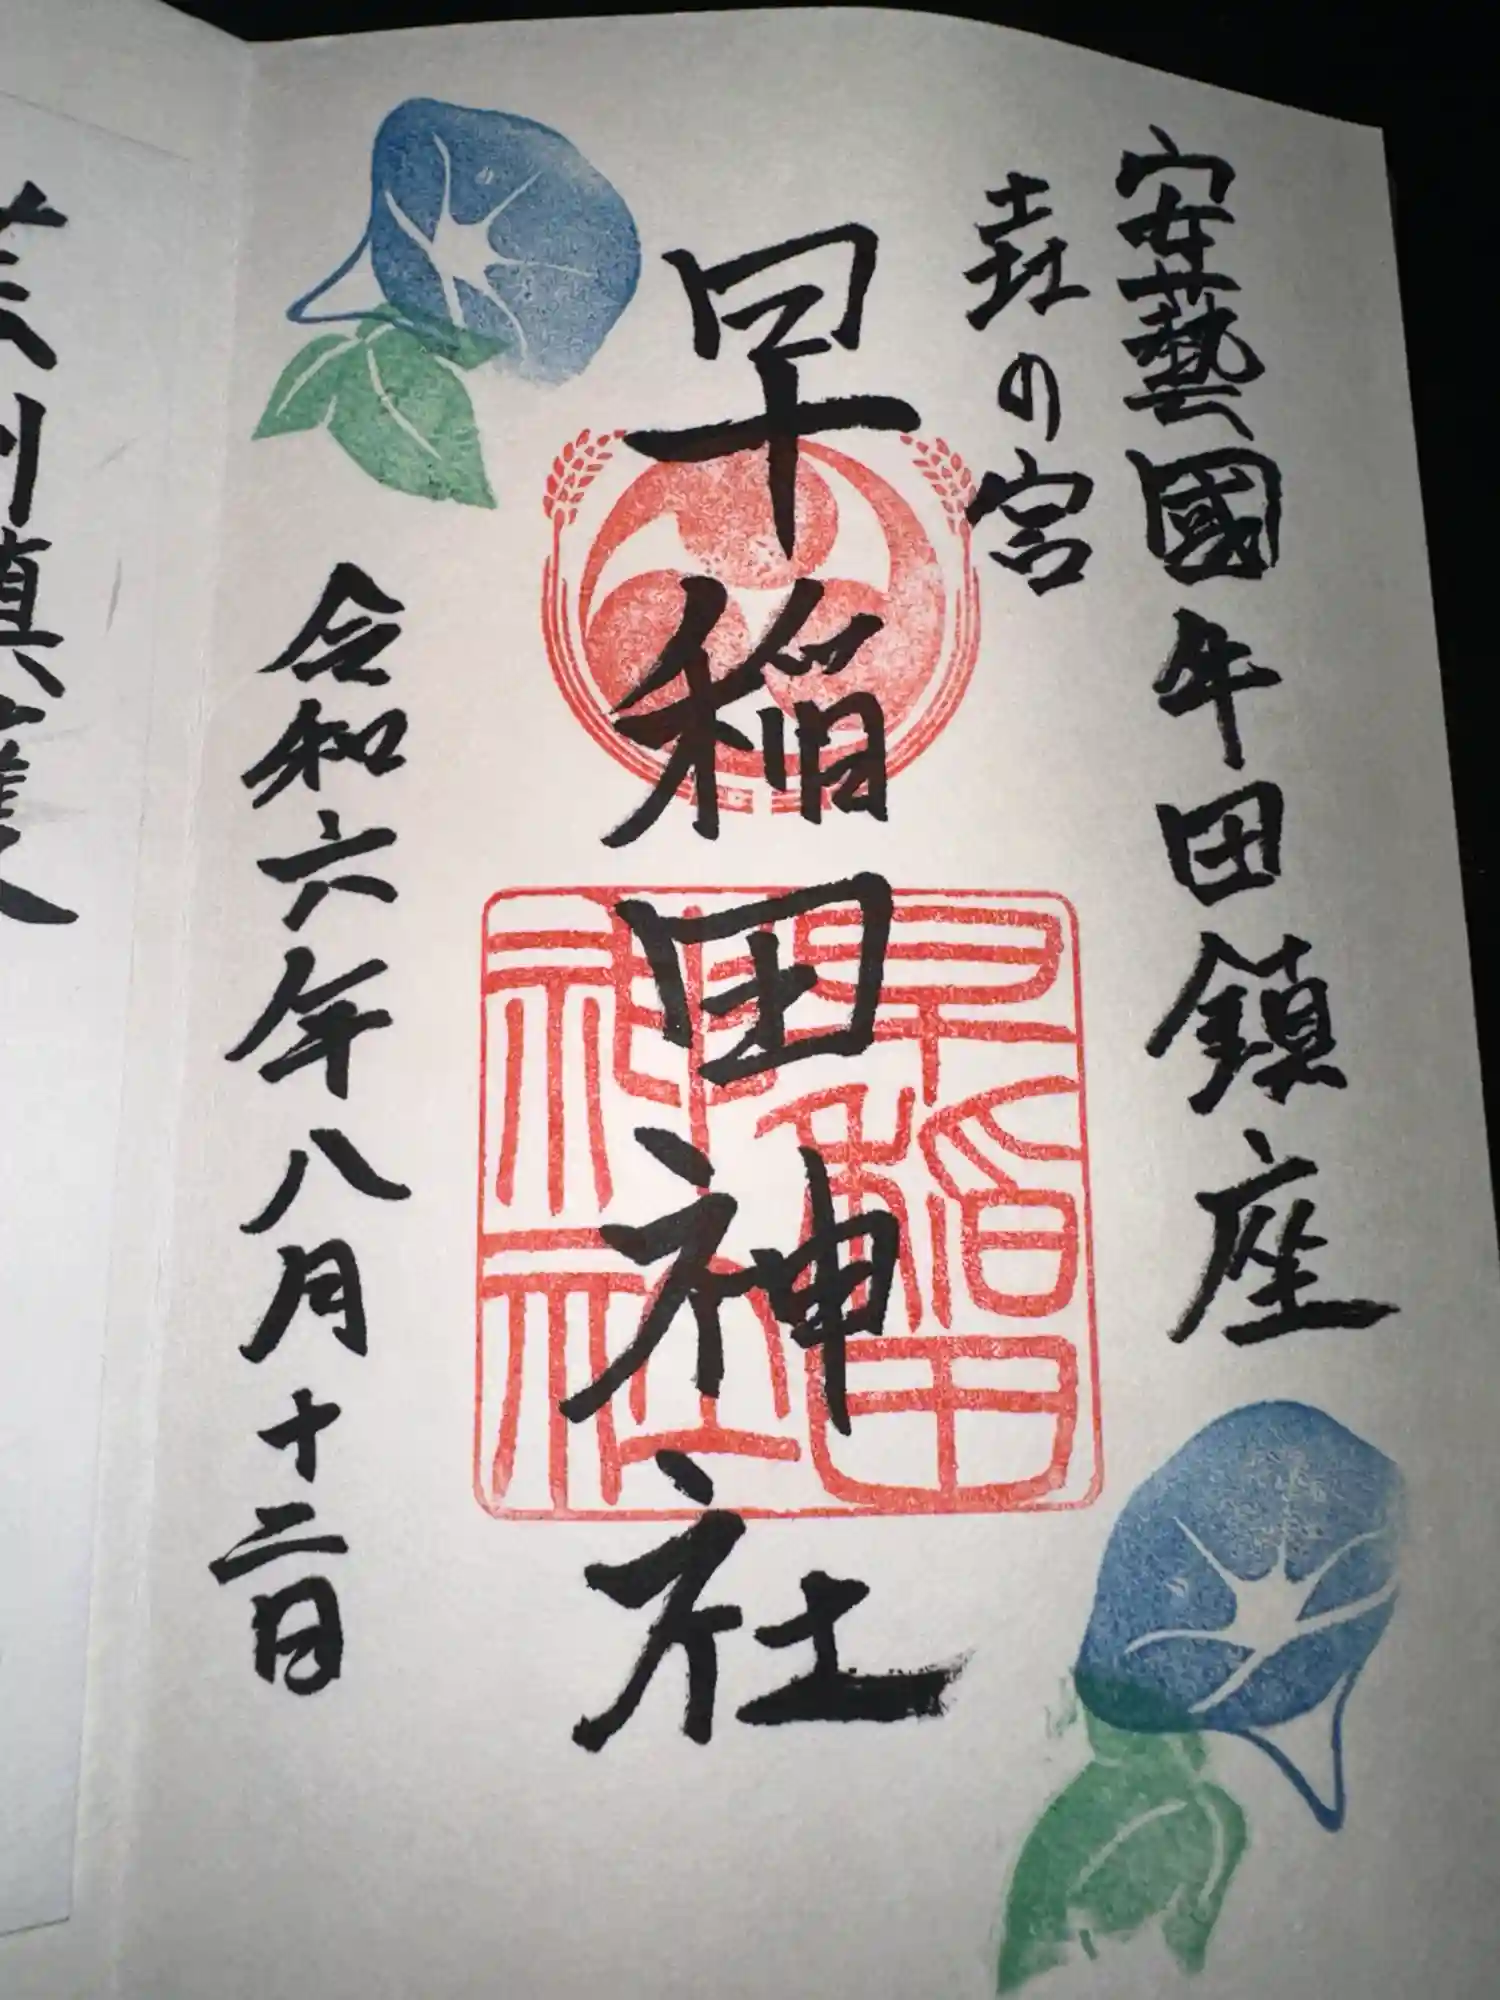 安藝國牛田鎮座
の宮
早稲田神社
早稲田神社
令和六年八月十二日